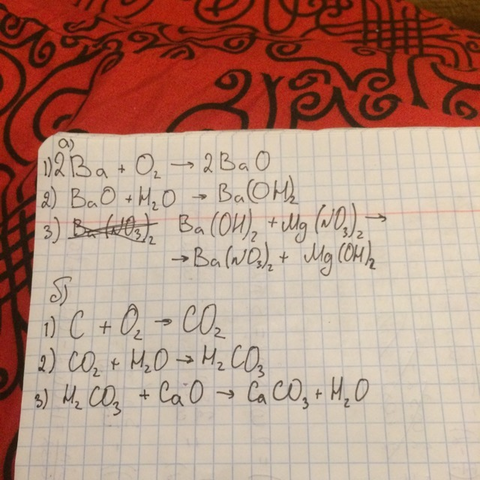 а)
1) 2Ba + O₂ → 2BaO
2) BaO + H₂O → Ba(OH)₂
3) ~~Ba(NO3)₂~~ Ba(OH)₂ + Mg(NO₃)₂ →
→ Ba(NO₃)₂ + Mg(OH)₂
б)
1) C + O₂ → CO₂
2) CO₂ + H₂O → H₂CO₃
3) H₂CO₃ + CaO → CaCO₃ + H₂O